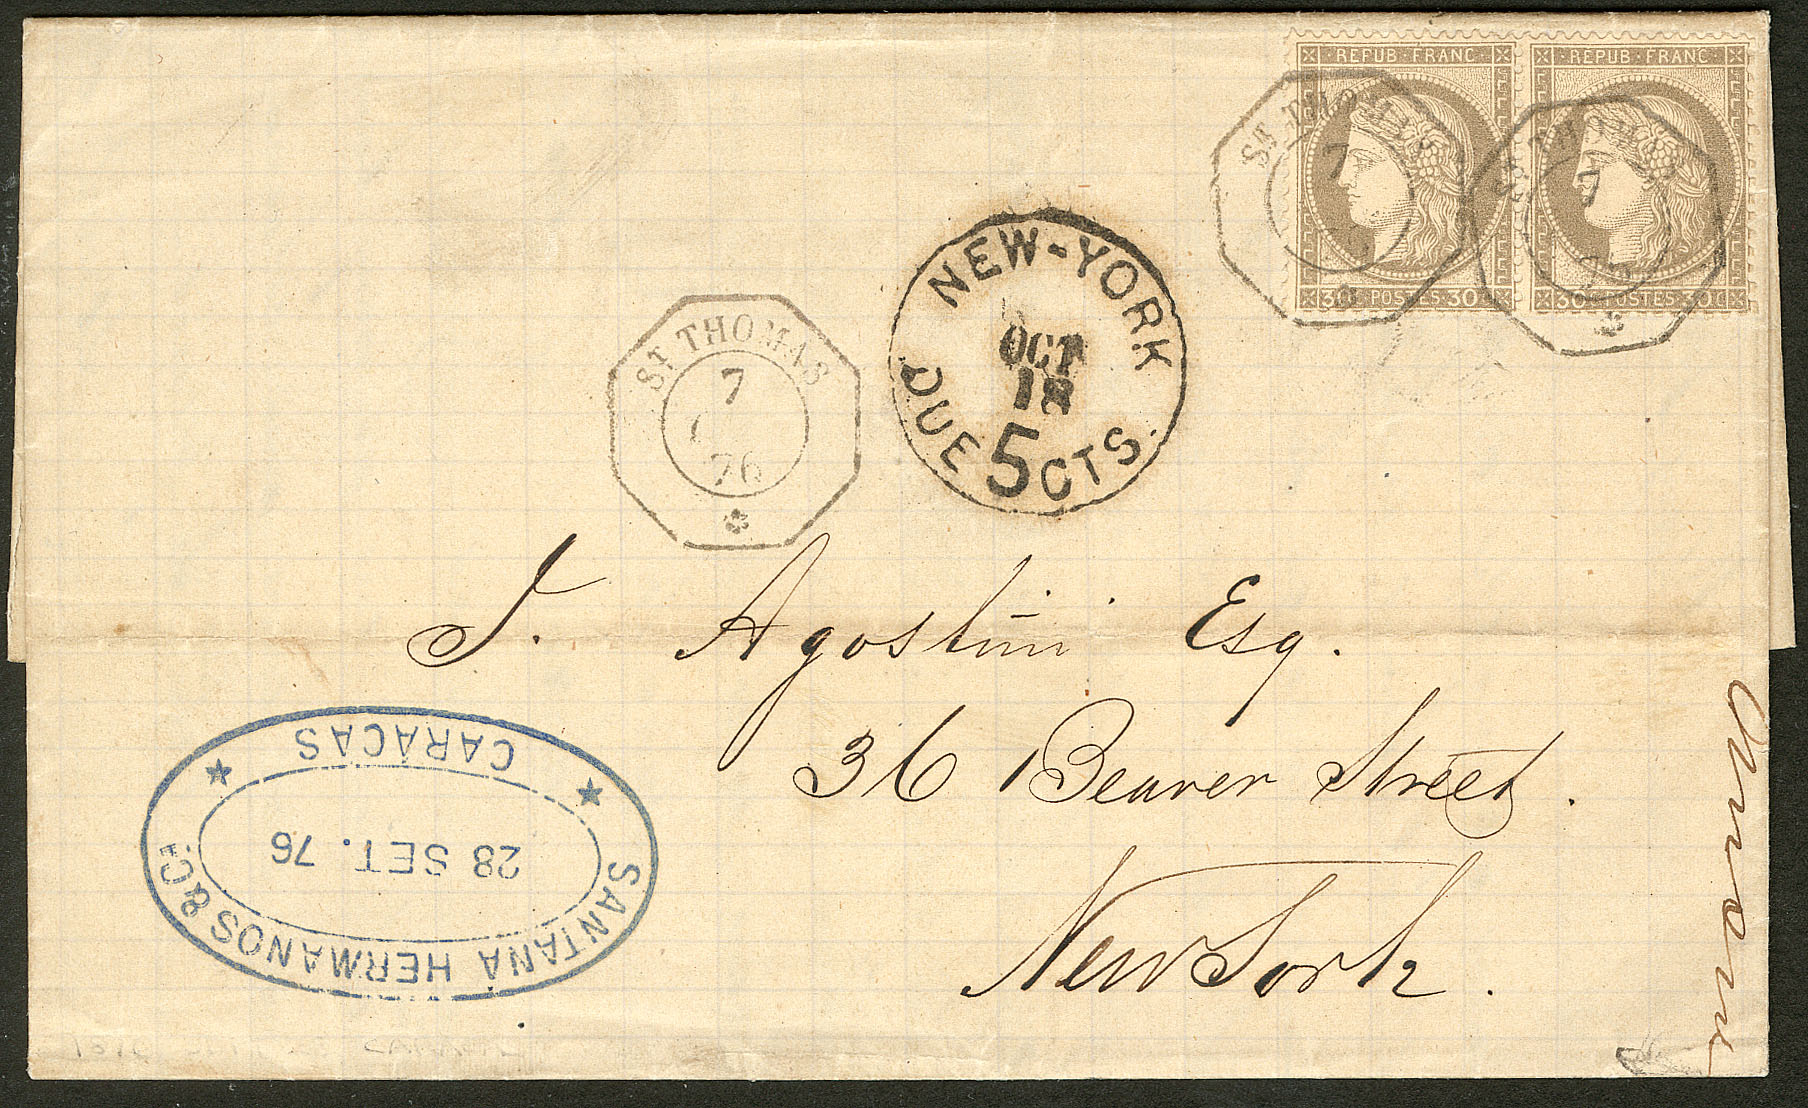 REPUB · FRANC
REPUB · FRANC
30 C · POSTES · 30 C
30 C · POSTES · 30 C
ST THOMAS
7
ST THOMAS
7
ST THOMAS
7
76
NEW-YORK
OCT
DUE 5 CTS.
J. Agostini Esq.
36 Beaver Street.
New York.
CARACAS
28 SET. 76
SANTANA HERMANOS & Ca